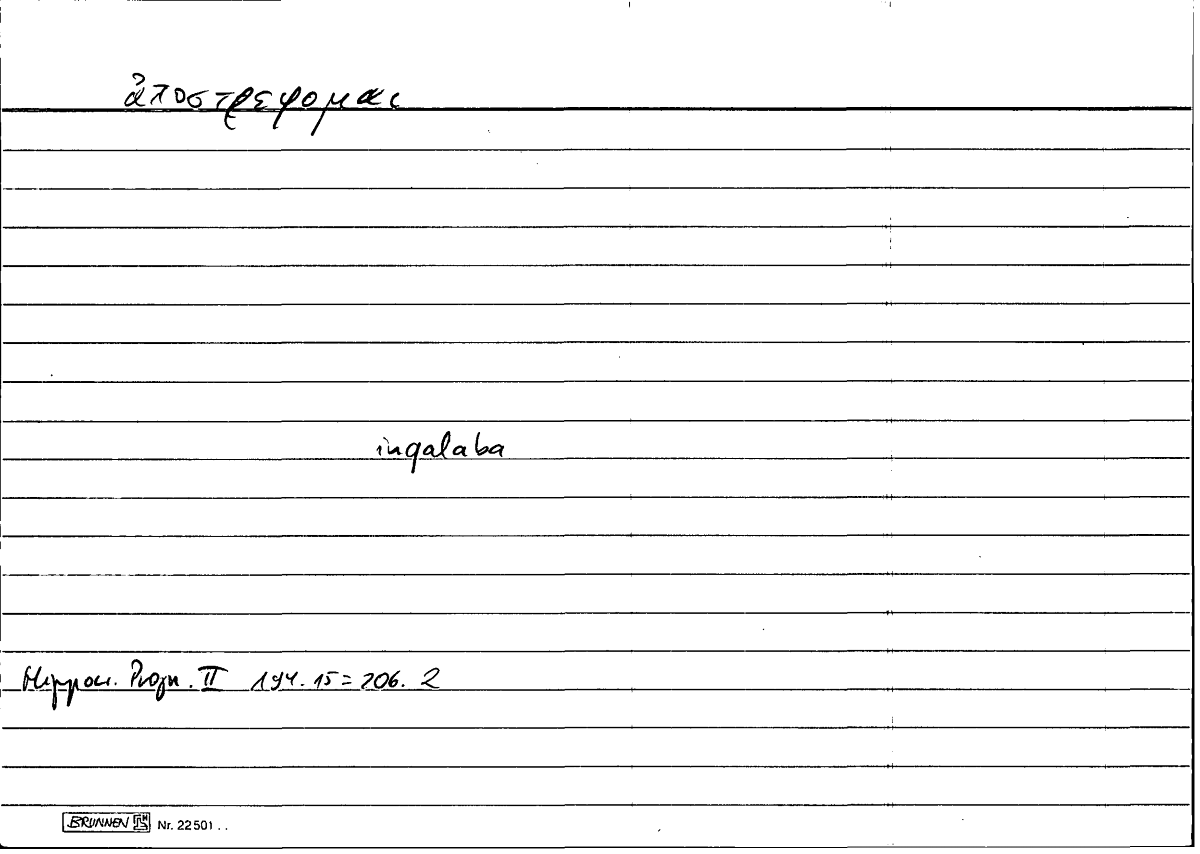 ἀποστρεφομαι
inqalaba
Hippocr. Progn. II 194.15 = 206.2
BRUNNEN Nr. 22501 . .